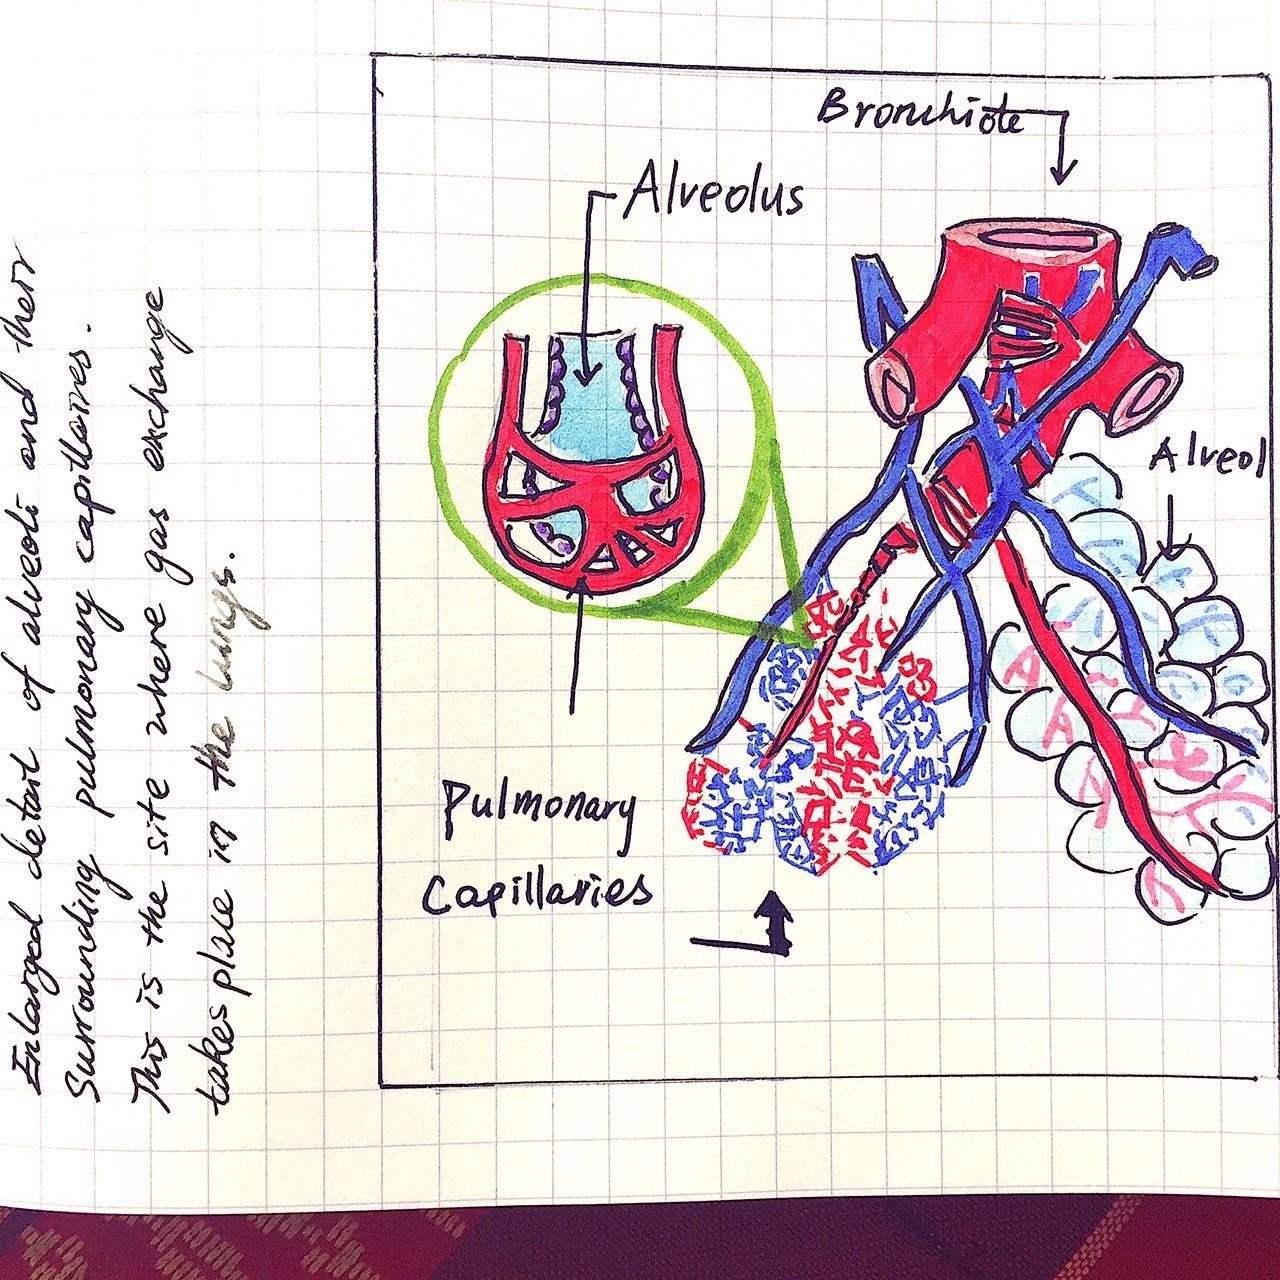 Enlarged detail of alveoli and their
surrounding pulmonary capillaries.
This is the site where gas exchange
takes place in the lungs.
Bronchiole
Alveolus
Alveol
Pulmonary
Capillaries